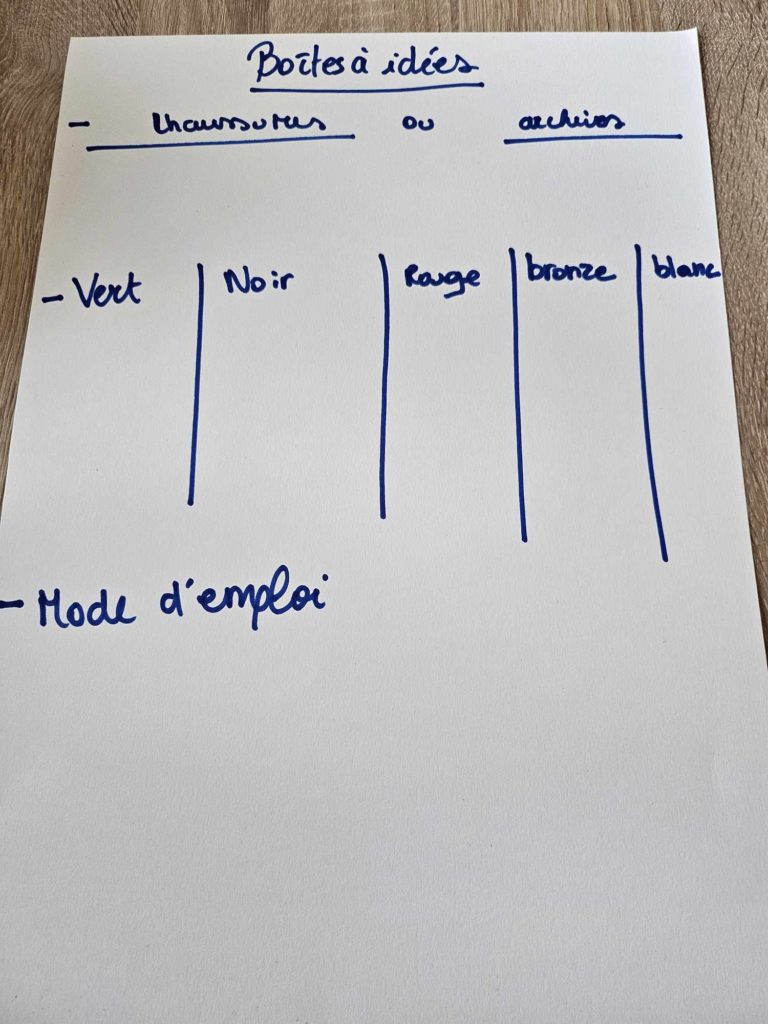 Boîtes à idées
- Chaussures ou archives
- Vert Noir Rouge bronze blanc
- Mode d'emploi